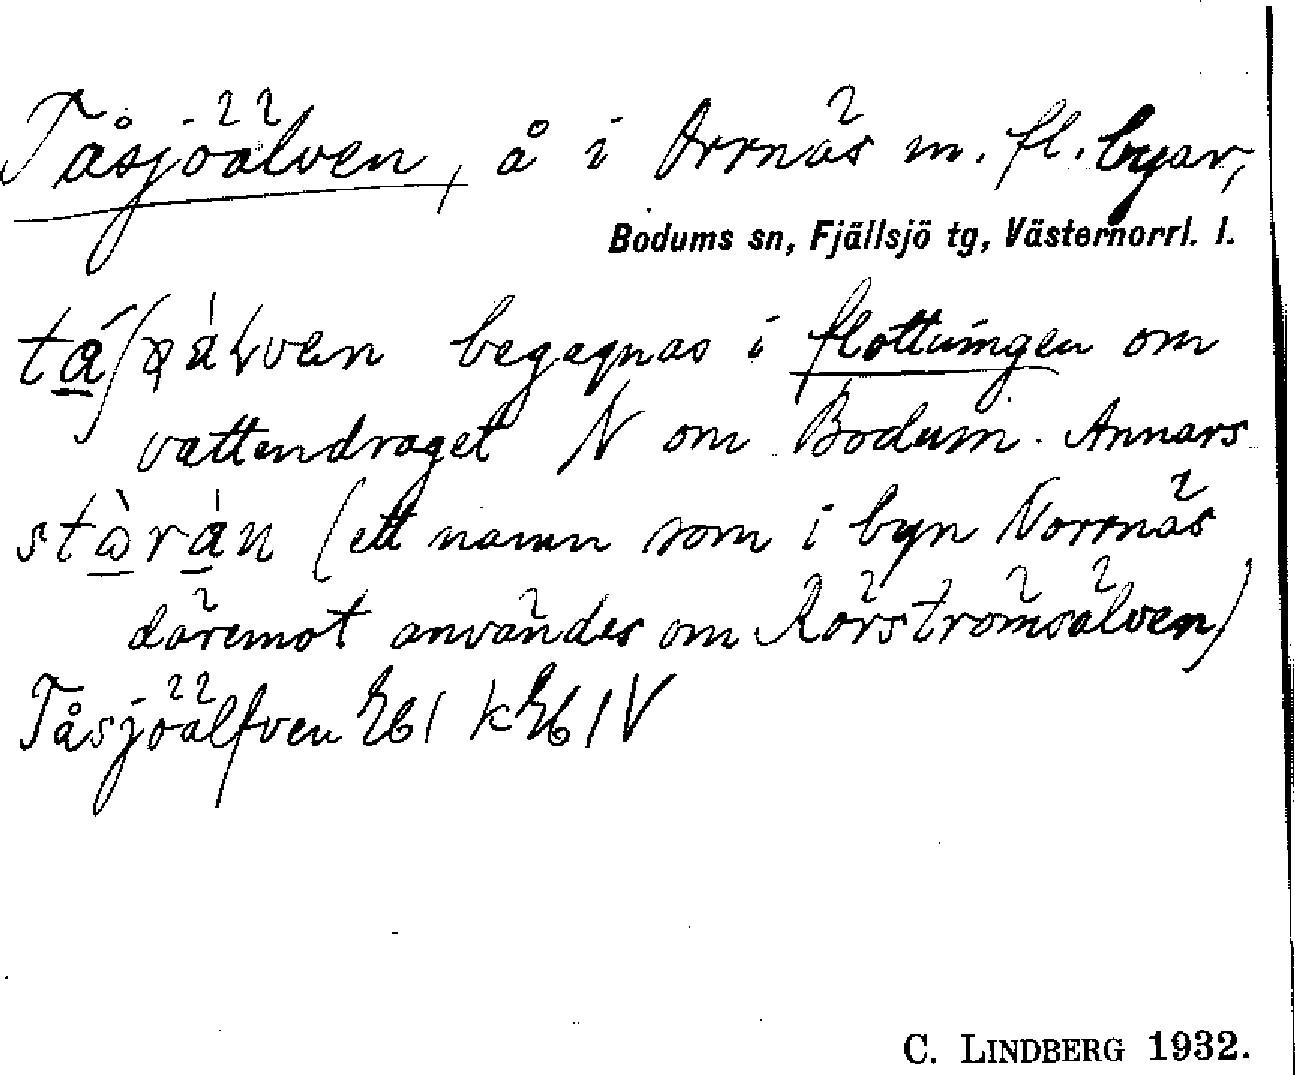 Tåsjöälven, å i Orrnäs m. fl. byar,
Bodums sn, Fjällsjö tg, Västernorrl. l.
begagnas i flottningen om
vattendraget N om Bodum. Annars
(ett namn som i byn Norrnäs
däremot användes om Rörströmsälven)
Tåsjöälfven
C. LINDBERG 1932.